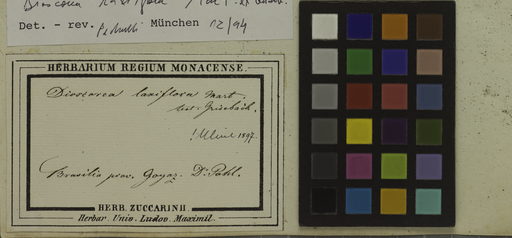 Dioscorea laxiflora Mart. ex Griseb.
Det. - rev. Pedralli München 12/94
HERBARIUM REGIUM MONACENSE.
Dioscorea laxiflora Mart.
test. Grisebach.
! Uline 1897.
Brasilia prov. Goyaz. Dr. Pohl.
HERB. ZUCCARINII
Herbar. Univ. Ludov. Maximil.